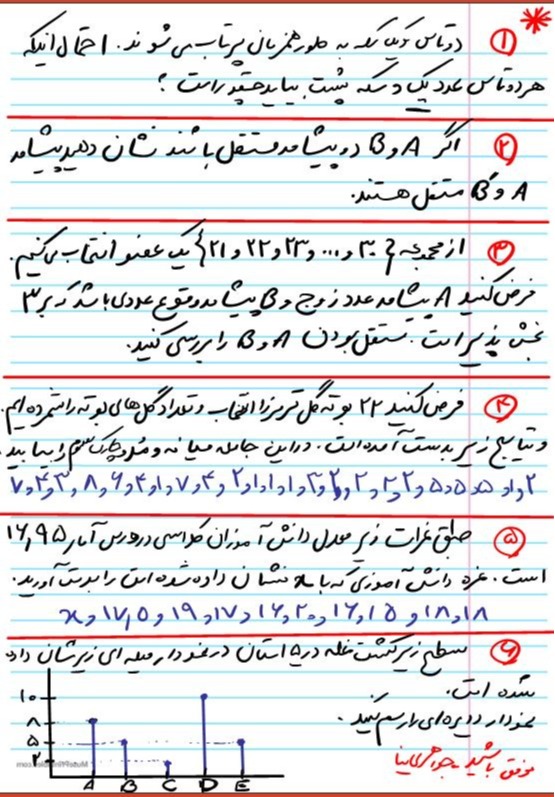 ① دو تاس و یک سکه به طور همزمان پرتاب می‌شوند. احتمال اینکه
هر دو تاس عدد یک و سکه پشت بیاید چقدر است؟
② اگر A و B دو پیشامد مستقل باشند نشان دهید پیشامد
A و B′ مستقل هستند.
③ از مجموعه {۲۱ و ۲۲ و ۲۳ و ... و ۳۰} یک عضو انتخاب می‌کنیم.
فرض کنید A پیشامد عدد زوج و B پیشامد وقوع عددی باشد که بر ۳
بخش پذیر است. مستقل بودن A و B را بررسی کنید.
④ فرض کنید ۲۲ بوته گل قرمز را انتخاب و تعداد گل های بوته را شمرده ایم.
و نتایج زیر بدست آمده است. در این جامعه میانه و مد و چارک سوم را بیابید.
⑤ طبق نمرات زیر معدل دانش آموزان کلاسی در درس آمار ۱۶,۹۵
است. نمره دانش آموزی که با x نشان داده شده است را بدست آورید.
۱۸ و ۱۸ و ۱۵ و ۱۶ و ۲۰ و ۱۶ و ۱۷ و ۱۹ و ۱۷,۵ و x
⑥ سطح زیر کشت غله در ۵ استان در نمودار میله ای زیر نشان داده
شده است.
نمودار دایره ای را رسم کنید.
۱۰
۸
۵
۲
A B C D E
موفق باشید -